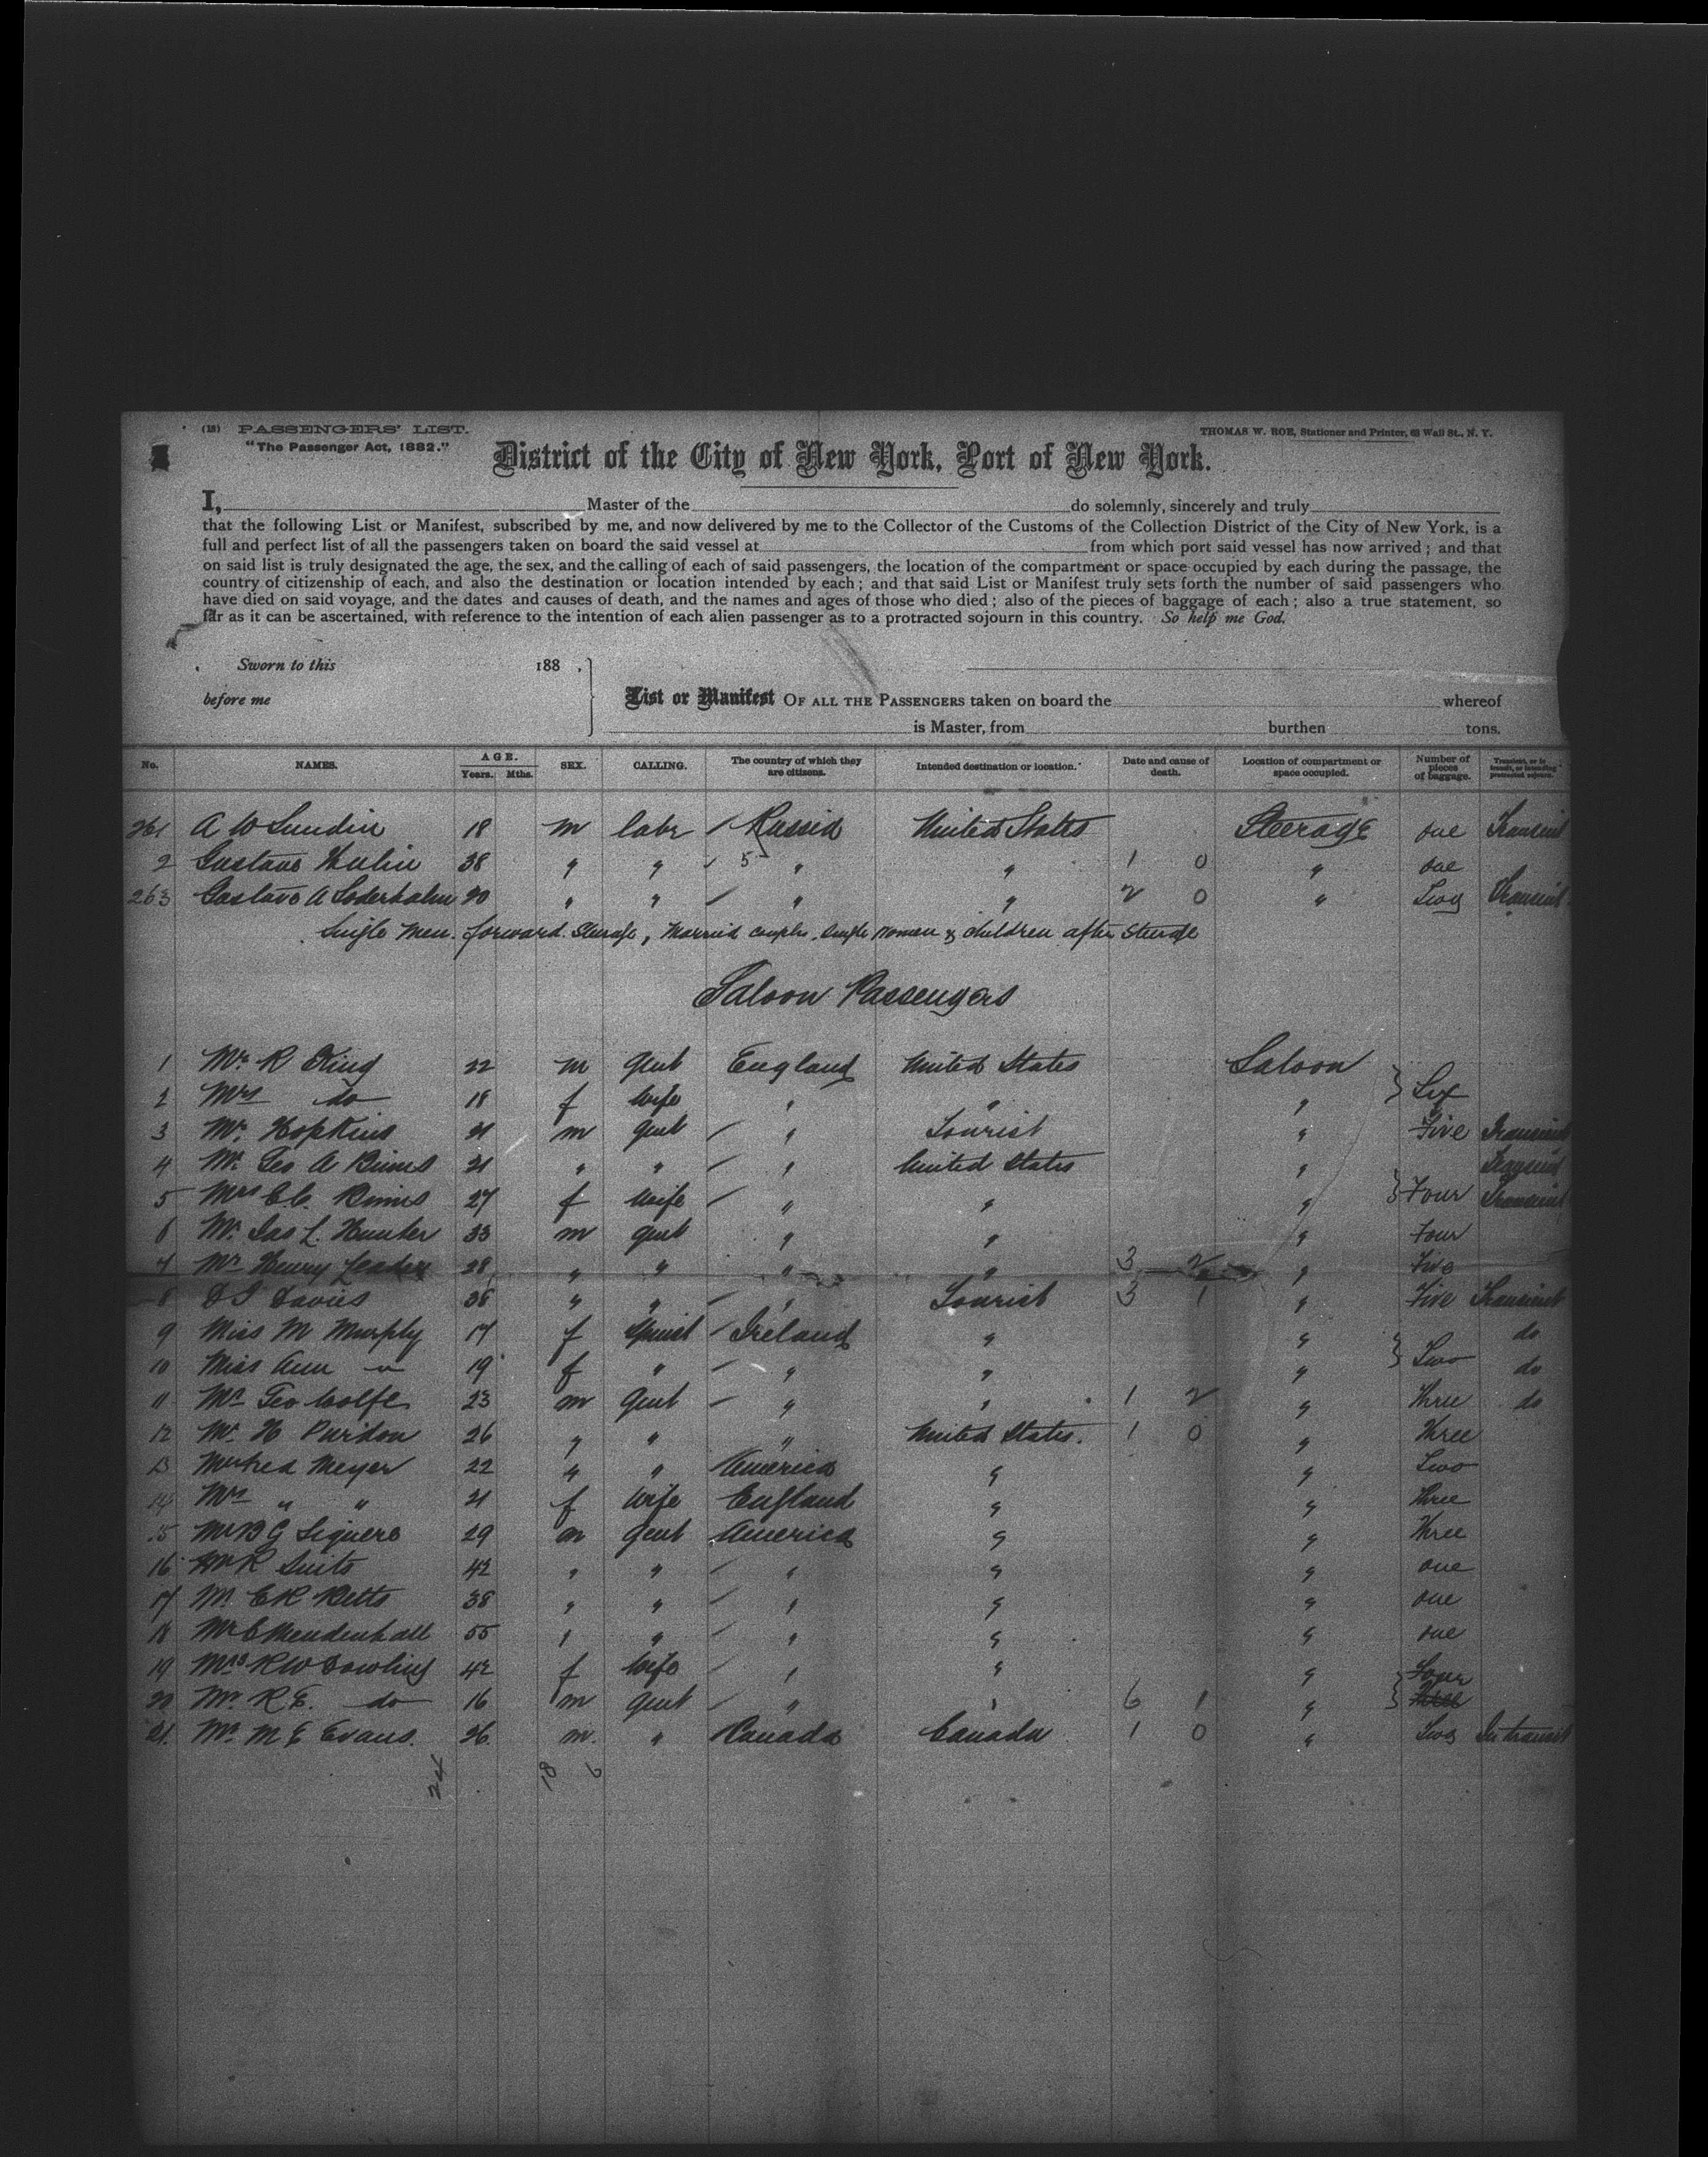 (13) PASSENGERS' LIST.
"The Passenger Act, 1882."
THOMAS W. ROE, Stationer and Printer, 63 Wall St., N. Y.
District of the City of New York, Port of New York.
I, Master of the do solemnly, sincerely and truly
that the following List or Manifest, subscribed by me, and now delivered by me to the Collector of the Customs of the Collection District of the City of New York, is a
full and perfect list of all the passengers taken on board the said vessel at from which port said vessel has now arrived; and that
on said list is truly designated the age, the sex, and the calling of each of said passengers, the location of the compartment or space occupied by each during the passage, the
country of citizenship of each, and also the destination or location intended by each; and that said List or Manifest truly sets forth the number of said passengers who
have died on said voyage, and the dates and causes of death, and the names and ages of those who died; also of the pieces of baggage of each; also a true statement, so
far as it can be ascertained, with reference to the intention of each alien passenger as to a protracted sojourn in this country. So help me God.
Sworn to this 188 .
before me
List or Manifest OF ALL THE PASSENGERS taken on board the whereof
is Master, from burthen tons.
No. NAMES. AGE. Years. Mths. SEX. CALLING. The country of which they are citizens. Intended destination or location. Date and cause of death. Location of compartment or space occupied. Number of pieces of baggage. Transient, or in transit, or intending protracted sojourn.
261 A W Sundin 18 m labr / Russia United States Steerage one Transient
2 Gustave 38 " " / 5 " " 1 0 " one
263 Gustave A Soderholm 20 " " / " " 2 0 " Two Transient
Single Men. forward Steerage, Married couples, single women & children after steerage
Saloon Passengers
1 Mr R King 22 m gent England United States Saloon } Six
2 Mrs do 18 f wife " " "
3 Mr. Hopkins 21 m gent / " Tourist " Five Transient
4 Mr. Geo A Binns 21 " " / " United States " Transient
5 Mrs Binns 27 f wife / " " " } Four Transient
6 Mr. Jas L. Hunter 33 m gent " " " Four
7 Mr Henry 28 " " " " 3 2 " Five
8 D I Davies 38 " " / " Tourist 3 1 " Five Transient
9 Miss M Murphy 17 f Spinst / Ireland " " } Two do
10 Miss Ann " 19 f " / " " " do
11 Mr Geo Wolfe 23 m gent / " " 1 2 " Three do
12 Mr. H Purdon 26 " " " United States. 1 0 " Three
13 Mr Fred Meyer 22 " " America " " Two
14 Mrs " " 21 f wife England " " Three
15 Mr B G Siquero 29 m gent America " " Three
16 Mr R Suits 42 " " / " " " one
17 Mr. E R Retts 38 " " / " " " one
18 Mr C Mendenhall 55 " " / " " " one
19 Mrs R W Dowling 42 f wife / " " " } Four
20 Mr. R E. do 16 m gent / " " 6 1 "
21. Mr. M E Evans. 26. m. " Canada Canada 1 0 " Two In transit
24 18 6